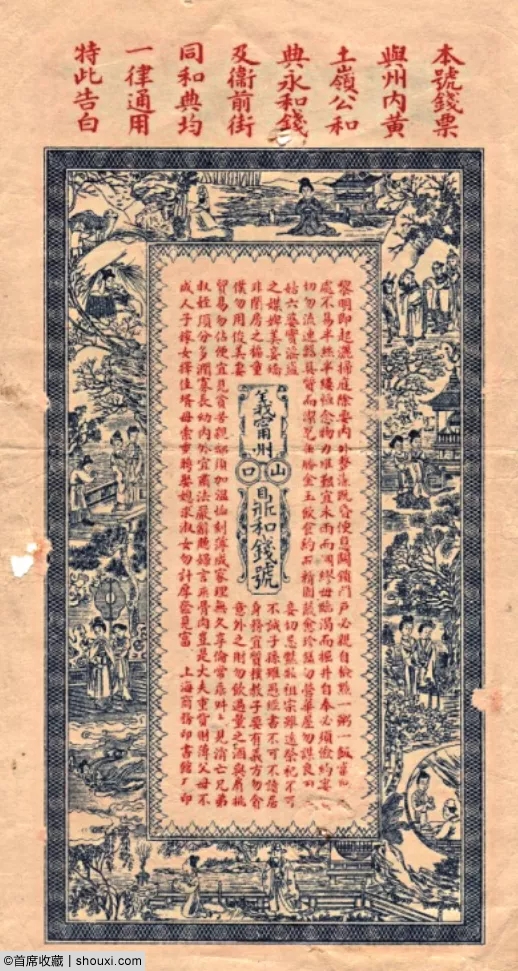 本號錢票
與州内黃
土嶺公和
典永和錢
及衞前街
同和典均
一律通用
特此告白
黎明即起灑掃庭除要内外整潔既昏便息關鎖門戶必親自檢點一粥一飯當
處不易半絲半縷恆念物力維艱宜未雨而綢繆毋臨渴而掘井自奉必須儉約宴
切勿流連器具質而潔瓦缶勝金玉飲食約而精園蔬愈珍饈勿營華屋勿謀良田
姑六婆實淫盜
之媒婢美妾嬌
非閨房之福童
僕勿用俊美妻
義甯州
山口
鼎和錢號
妾切忌艷粧祖宗雖遠祭祀不可
不誠子孫雖愚經書不可不讀居
身務宜質樸教子要有義方勿貪
意外之財勿飲過量之酒與肩挑
貿易勿佔便宜見貧苦親鄰須加溫恤刻薄成家理無久享倫常乖舛立見消亡兄弟
叔姪須分多潤寡長幼内外宜肅法嚴辭聽婦言乖骨肉豈是丈夫重貲財薄父母不
成人子嫁女擇佳壻毋索重聘娶媳求淑女勿計厚奩見富 上海商務印書館 印
©首席收藏 | shouxi.com